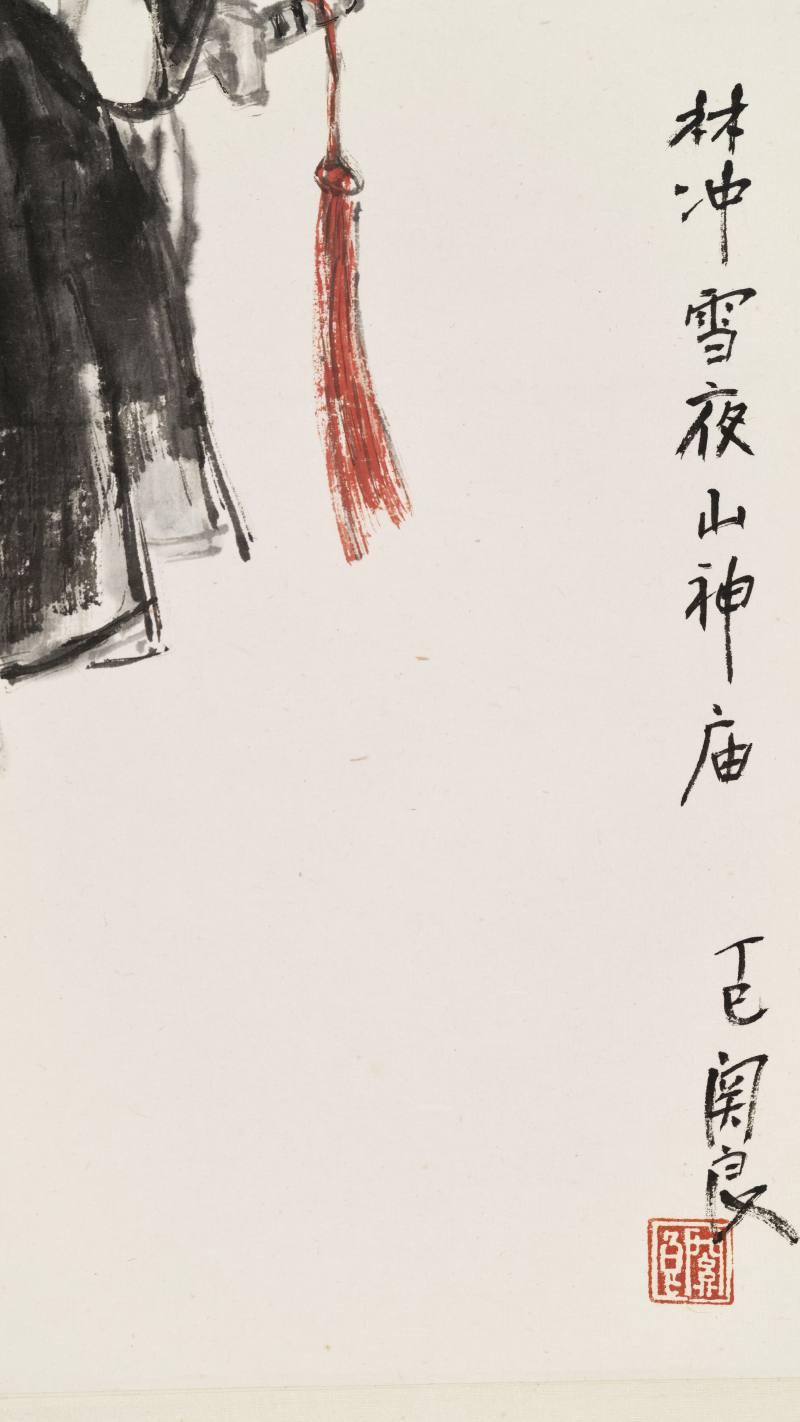 林冲雪夜山神庙
丁巳 関良
関良